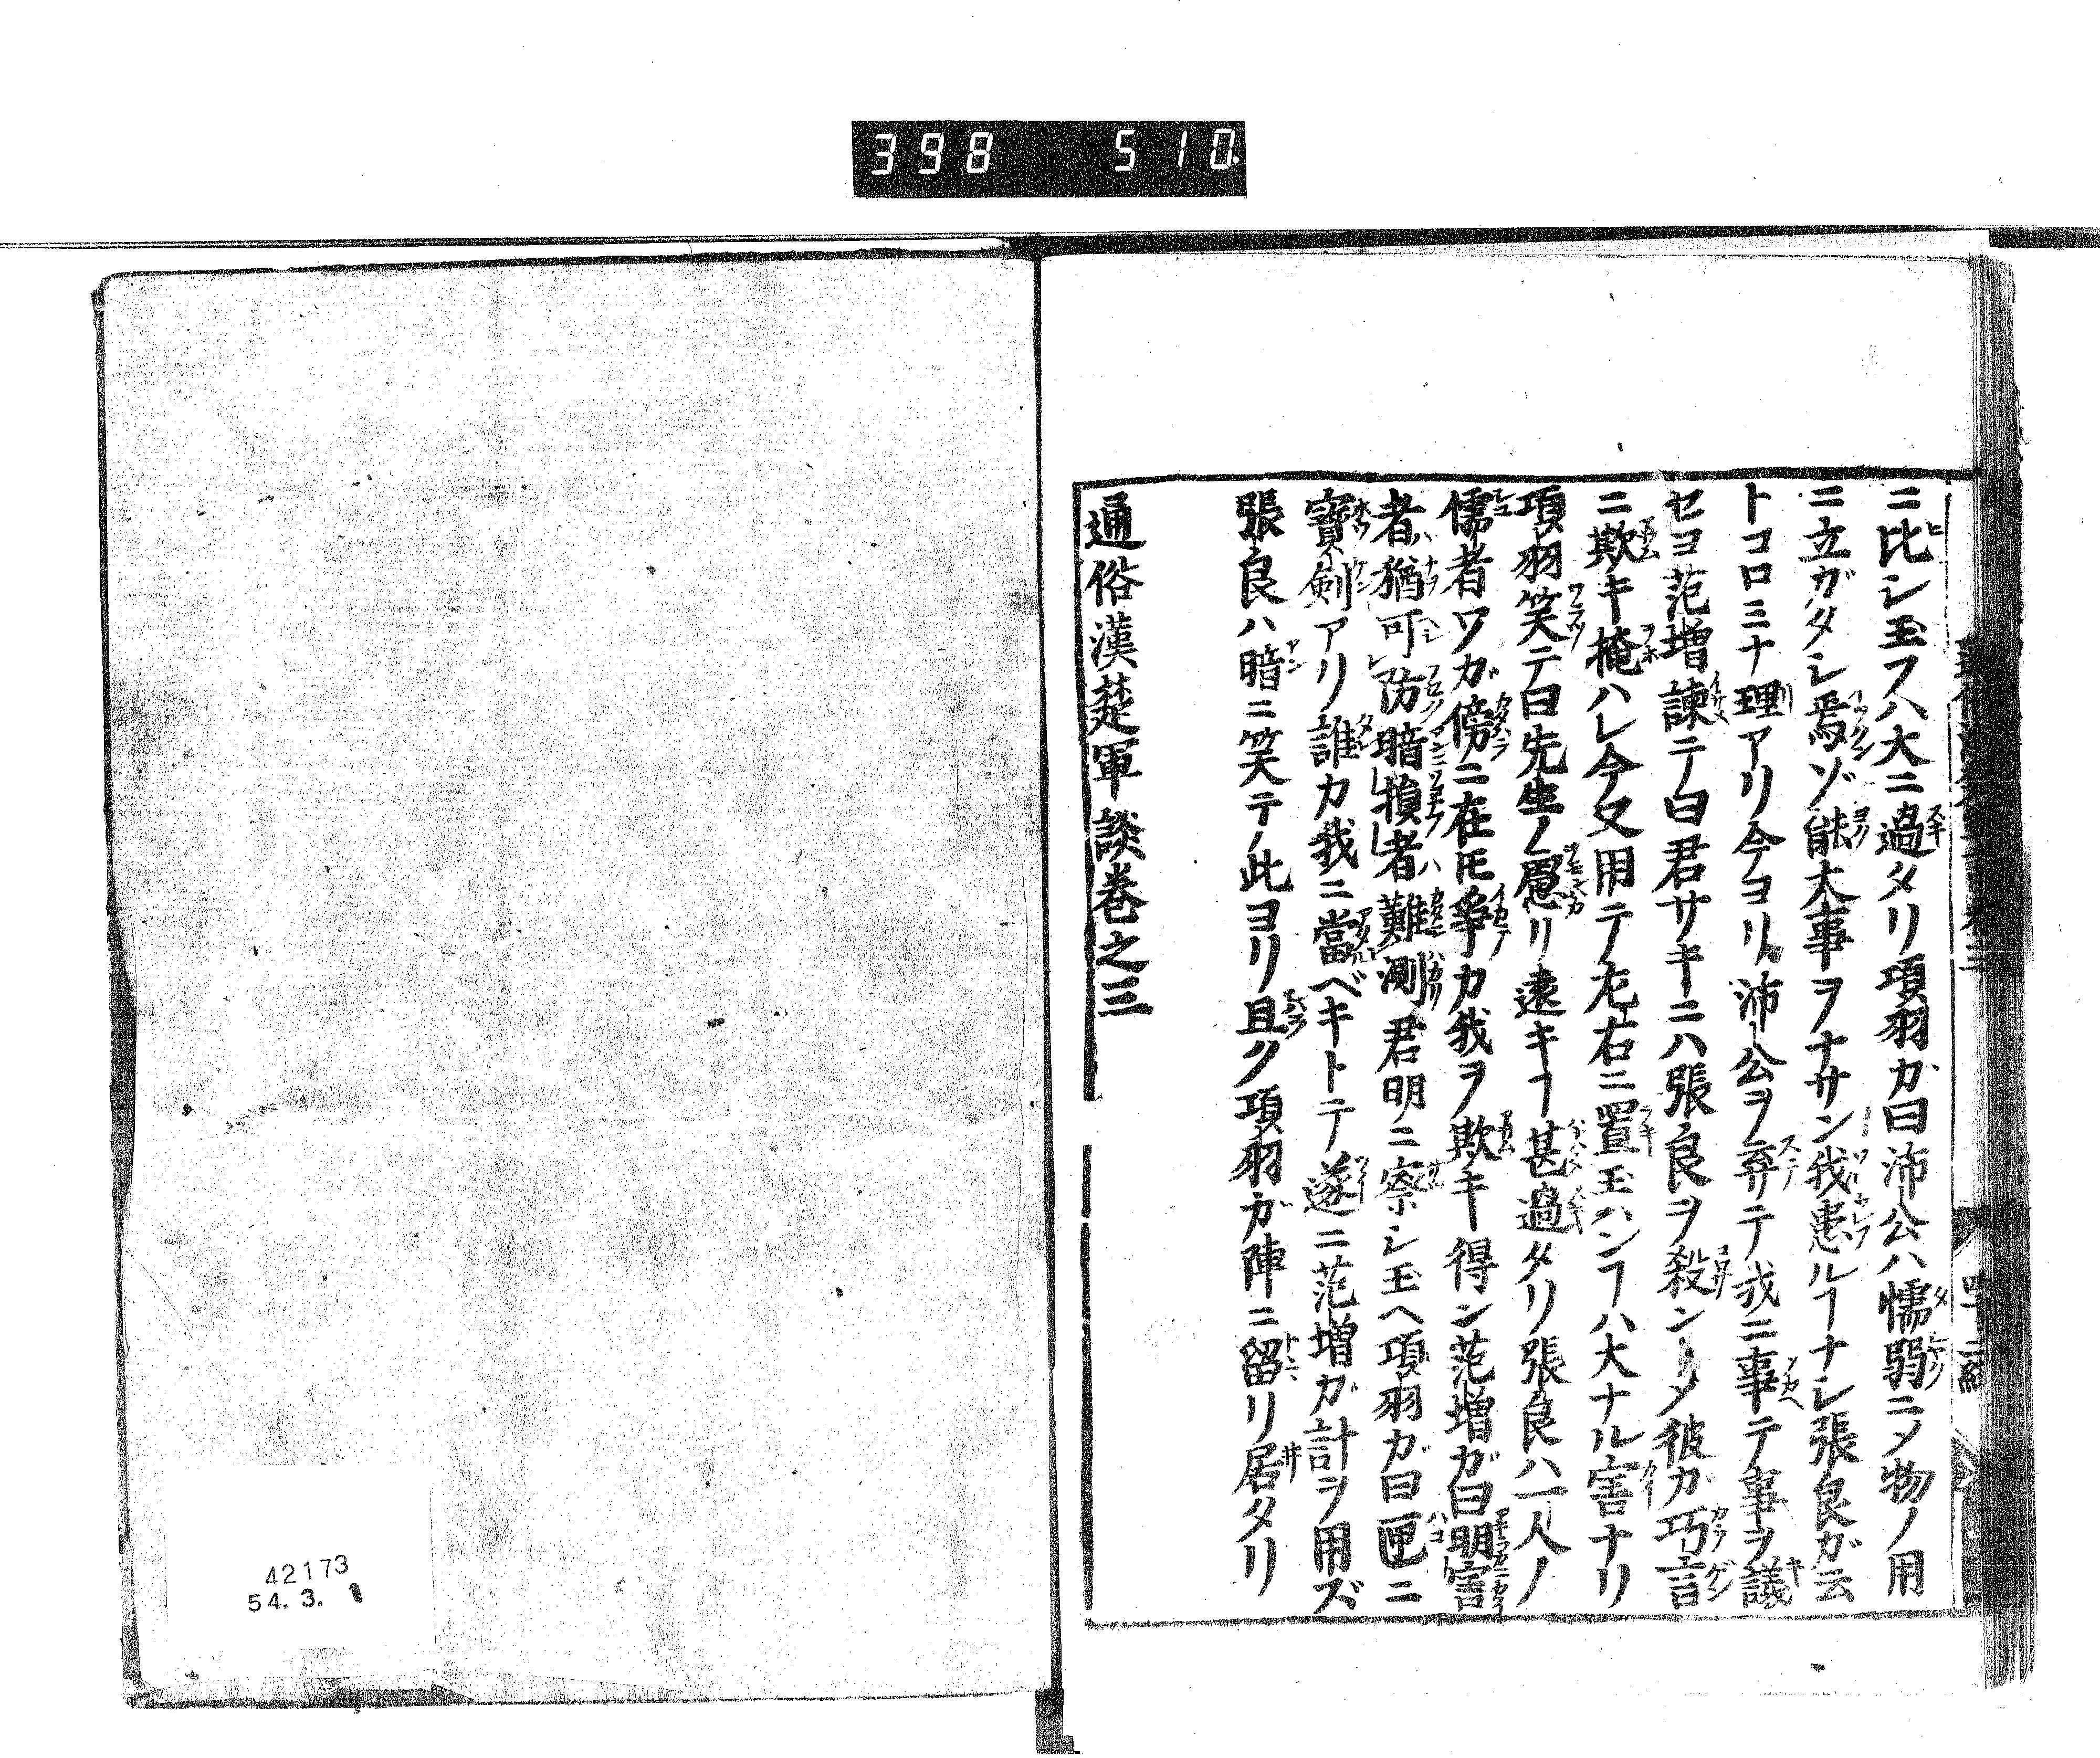 398 510
ニ比シ玉フハ大ニ過タリ項羽ガ曰沛公ハ懦弱ニメ物ノ用
ニ立ガタシ焉ゾ能大事ヲナサン我患ルヿナシ張良ガ云
トコロミナ理アリ今ヨリ沛公ヲ弃テ我ニ事テ事ヲ議
セヨ范増諫テ曰君サキニハ張良ヲ殺ンリメ彼ガ巧言
ニ欺キ掩ハレ今又用テ左右ニ置玉ハンヿハ大ナル害ナリ
項羽笑テ曰先生ノ慮リ遠キヿ甚過タリ張良ハ一人ノ
儒者ワガ傍ニ在圧爭カ我ヲ欺キ得ン范増ガ曰明害
者ハ猶可レ防暗損者ハ難測君明ニ察シ玉ヘ項羽ガ曰匣ニ
寳剣アリ誰カ我ニ當ベキトテ遂ニ范増ガ計ヲ用ズ
張良ハ暗ニ笑テ此ヨリ且ク項羽ガ陣ニ留リ居タリ
通俗漢楚軍談巻之三
42173
54. 3. 1